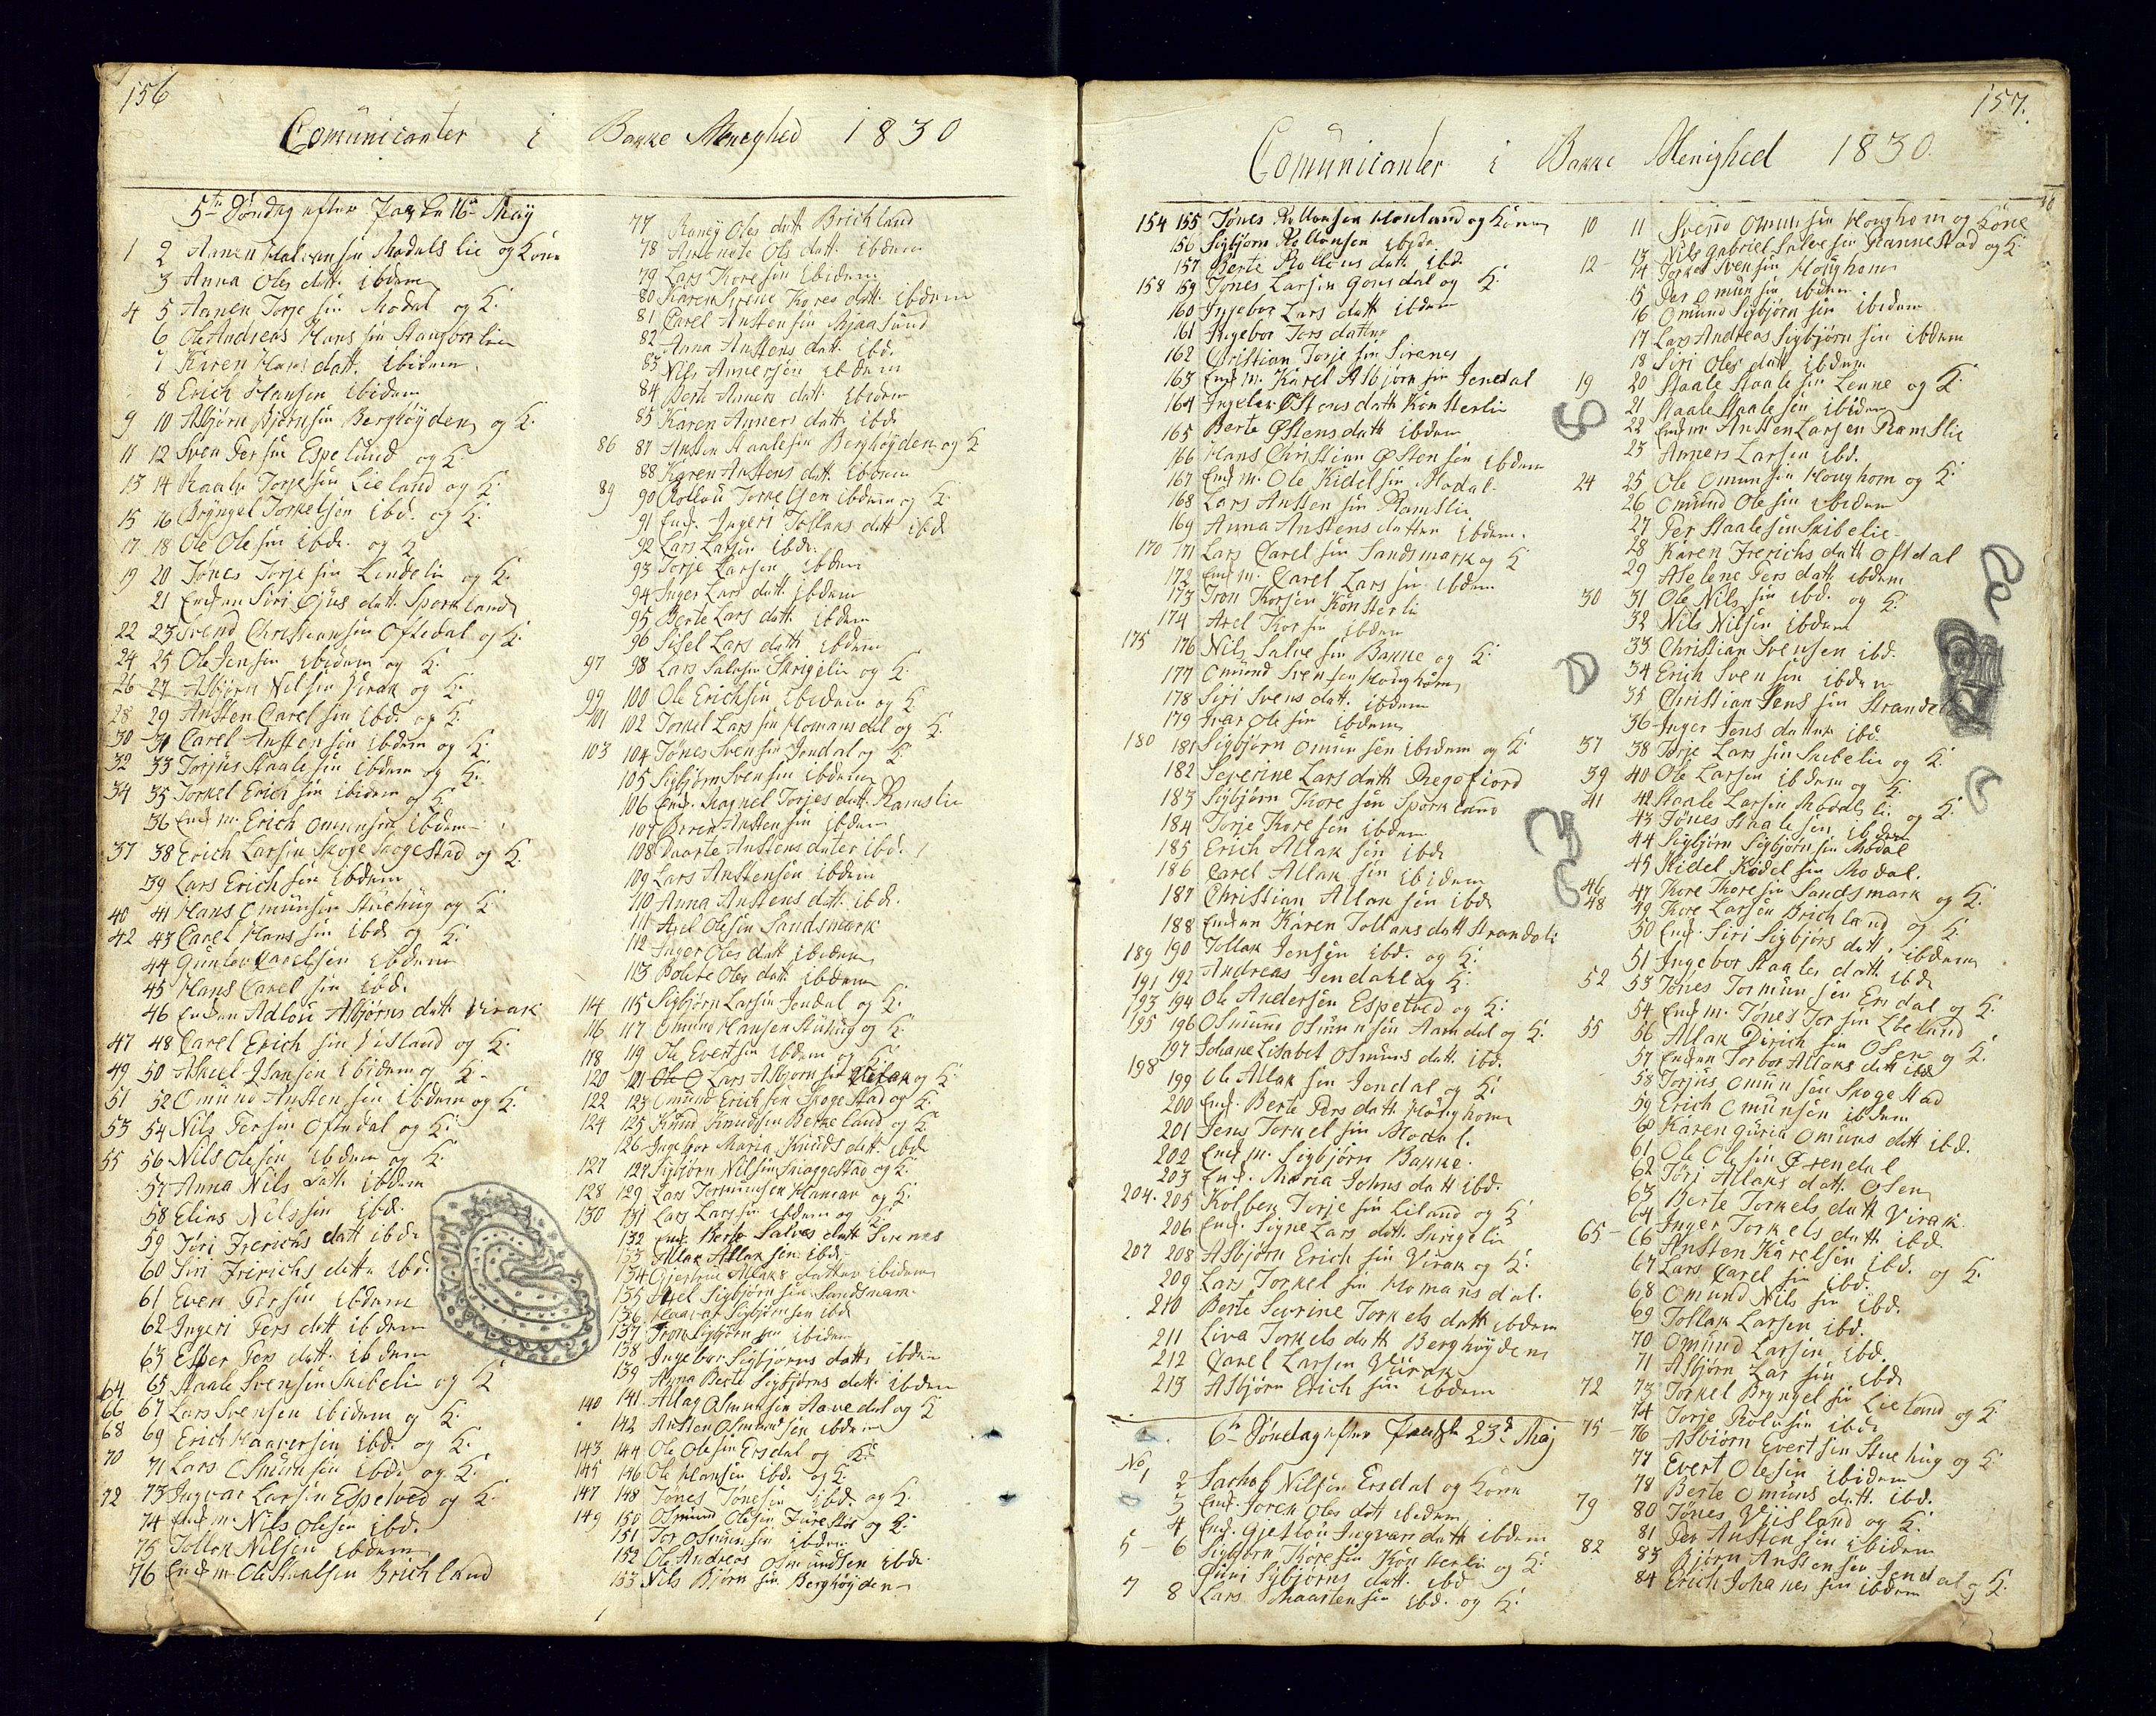 156
Comunicanter i Bakke Menighed 1830
5te Søndag efter Paaske 16de May
1 2 Aanen Halvorsen Modalslie og Kone
3 Anna Oles datt. ibdem
4 5 Aanen Torje sin Modal og K:
6 Ole Andreas Hans sin
7 Karen Hans datt. ibidem
8 Erich Hansen ibidem
9 10 Asbjørn Bjørnsin Berghøyden og K:
11 12 Sven Persin Espelund og K:
13 14 Torjesin Lieland og K:
15 16 Bryngel Torkelsen ibd. og K:
17 18 Ole Olesin ibd. og K
19 20 Tønes Torje sin Lindelie og K:
21 Enken Siri datt. Sporkland
22 23 Svend Christiansin Oftedal og K:
24 25 Ole Jensin ibidem og K:
26 27 Asbjørn Nilsin Virak og K:
28 29 Ansten Carel sin ibd. og K:
30 31 Carel Ansten sin ibdem og K:
32 33 Torjus Staale sin ibdem og K:
34 35 Torkel Erich sin ibidem og K
36 Enk m. Erich Omunsin ibdem
37 38 Erich Larsin Skogestad og K.
39 Lars Erich sin ibdem
40 41 Hans Omunsin Stuehug og K:
42 43 Carel Hans sin ibd. og K:
44 Gunlev Carelsen ibdem
45 Hans Carel sin ibd.
46 Enken Adlou Asbjørns datt Virak
47 48 Carel Erich sin Viisland og K:
49 50 Hansin ibidem og K
51 52 Omund Ansten sin ibdem og K.
53 54 Nils Persin Oftedal og K:
55 56 Nils Olesin ibdem og K:
57 Anna Nils datt. ibdem
58 Elias Nilssin ibd.
59 Tøri Frerichs datt ibd.
60 Siri Fririchs datt. ibd.
61 Even Persin ibdem
62 Ingeri Pers datt ibdem
63 Esper Pers datt. ibdem
64 65 Staale Svensin Skibelie og K
66 67 Lars Svensen ibidem og K:
68 69 Erich Haaversin ibd. og K:
70 71 Lars Osmunsin ibd. og K:
72 73 Ingvar Larsin Espetved og K:
74 Enk m. Nils Olesin ibd.
75 Tollak Nilsin ibdem
76 Enk m. Ole Staalsin Brichland
77 Raney Oles datt Brichland
78 Oles datt. ibdem
79 Lars Koresin ibidem
80 Karen Sirene Kores datt. ibdem
81 Carel Ansten sin Bjaasund
82 Anna Anstens datt. ibd.
83 Nils Annersin ibdem
84 Berte Anners datt. ibidem
85 Karen Anners datt. ibd.
86 87 Ansten Staalesin Berghøyden og K
88 Karen Anstens datt. ibdem
89 90 Rollou Torkelsen ibdem og K:
91 Enk. Ingeri Tollaks datt ibd.
92 Lars Larsin ibd.
93 Torje Larsen ibdem
94 Inger Lars datt. ibdem
95 Berte Lars datt. ibdem
96 Sisel Lars datt. ibdem
97 98 Lars Salvesin Skrigelie og K:
99 100 Ole Ericksin ibidem og K
101 102 Torkel Lars sin Homansdal og K:
103 104 Tønes Svensin Jendal og K:
105 Sigbjørn Svensin ibdem
106 Enk. Magnel Torjes datt. Ramslie
107 Beren Ansten sin ibdem
108 Anstens dater ibd.
109 Lars Anstensin ibdem
110 Anna Anstens datt. ibd.
111 Axel Olesin Sandsmark
112 Inger Oles datt ibidem
113 Bolete Oles datt. ibdem
114 115 Sigbjørn Larsin Jendal og K:
116 117 Omund Hansen Stuhug og K:
118 119 Ole Evertsin ibdem og K:
120 121 Ole O Lars Asbjørn sin Virak og K:
122 123 Omund Erich sin Skogestad og K:
124 125 Knud Knudsin Berkeland og K:
126 Ingebor Maria Knuds datt. ibd.
127 127 Sigbjørn Nilsin Skiaggestad og K:
128 129 Lars Tormunsen Hamran og K:
130 131 Lars Larssin ibdem og K:
132 Enk. Berte Salves datt Sirenes
133 Allak Allak sin ibd.
134 Gjertrue Allaks datter ibidem
135 Axel Sigbjørn sin Sandsmark
136 Sigbjørnsen ibd
137 Tron Sigbjørn sin ibidem
138 Ingebor Sigbjørns datt. ibdem
139 Anna Berte Sigbjørns datt. ibdem
140 141 Allag Osmunsin Aavedal og K
142 Ansten Osmundsin ibdem
143 144 Ole Olesin Ersdal og K:
145 146 Ole Hansin ibd. og K:
147 148 Tønes Tønesin ibd. og K:
149 150 Osmund Olesin og K:
151 Tor Osmunsin ibdem
152 Ole Andreas Osmundsen ibd.
153 Nils Bjørn sin Berghøyden
157.
Comunicanter i Bakke Menighed 1830.
154 155 Tønes Rollousen Houland og Kone
156 Sigbjørn Rollousen ibd.
157 Berte Rollous datt ibd.
158 159 Tønes Larsin Gonsdal og K:
160 Ingebor Lars datt ibdem
161 Ingebor Tors datter
162 Christian Torje sin Sirenes
163 Enk m. Karel Asbjørn sin Jendal
164 Østens datt Konsterlie
165 Berte Østens datt ibdem
166 Hans Christian Østen sin ibdem
167 Enk m. Ole Kidelsin Modal
168 Lars Ansten sin Ramslie
169 Anna Anstens datter ibdem.
170 171 Lars Carel sin Sandsmark og K
172 Enk m. Carel Lars sin ibdem
173 Tron Korsin Konsterli
174 Axel Korsin ibdem
175 176 Nils Salve sin Bakke og K:
177 Omund Svensen Houghom
178 Siri Svens datt. ibdem
179 Ivar Ole sin ibdem
180 181 Sigbjørn Omunsen ibidem og K:
182 Severine Lars datt Regefiord
183 Sigbjørn Kore sin Sporkland
184 Torje Kore sin ibdem
185 Erich Allak sin ibd
186 Carel Allak sin ibidem
187 Christian Allak sin ibd
188 Enken Karen Tollaks datt Strandeli
189 190 Tollak Jensin ibd. og K:
191 192 Andreas Jendahl og K:
193 194 Ole Andersen Espetved og K:
195 196 Osmund Osmunsin Aamdal og K:
197 Johane Lisabet Osmuns datt. ibd.
198 199 Ole Allak sin Jendal og K:
200 Enk. Berte Pers datt. Houghom
201 Jens Torkel sin Modal.
202 Enk m. Sigbjørn Bakke.
203 Enk. Maria Johns datt ibd.
204. 205 Kolben Torje sin Liland og K
206 Enk. Signe Lars datt. Skrigelie
207 208 Asbjørn Erich sin Virak og K:
209 Lars Torkel sin Homansdal.
210 Berte Sevrine Torkels datt ibdem
211 Liva Torkels datt Berghøyden
212 Carel Larsin Virak
213 Asbjørn Erich sin ibdem
6te Søndag efter Paaske 23de Maj
No
1 2 Jachob Nilsen Ersdal og Kone
3 Enk. Joren Oles datt ibidem
4 Enk. Gjetlou Ingvars datt ibdem
5 6 Sigbjørn Koresin Konsterlie og K:
Guni Sigbjørns datt. ibd
7 8 Lars Maartensin ibd. og K:
10 11 Svend Omunsin Houghom og Kone
12 13 Nils Gabriel Salvesin Rannestad og K
14 Torkel Svensin Houghom
15 Per Omunsin ibdem
16 Omund Sigbjørn sin ibidem
17 Lars Andreas Sigbjørn sin ibdem
18 Siri Oles datt ibdem
19 20 Staale Staale sin Leune og K:
21 Staale Staale sin ibidem
22 Enk m. Ansten Larsen Ramslie
23 Anners Larsen ibd.
24 25 Ole Omunsin Houghom og K:
26 Omund Ole sin ibidem
27 Per Staalesin Skibelie
28 Karen Frerichs datt Oftdal
29 Aselene Pers datt. ibdem
30 31 Ole Nils sin ibd. og K:
32 Nils Nilsin ibdem
33 Christian Svensen ibd.
34 Erich Svensin ibdem
35 Christian Jens sin Strande
36 Inger Jens datter ibd
37 38 Torje Lars sin Skibelie og K
39 40 Ole Larsen ibdem og K:
41 42 Staale Larsin Modalsli og K:
43 Tønes Staale sin ibdem
44 Sigbjørn Sigbjørn sin Modal
45 Kidel Kidel sin Modal.
46 47 Kore Koresin Sandsmark og K:
48 49 Kore Larsen Brichland og K:
50 Enk. Siri Sigbjørs datt. ibdem
51 Ingebor Staales datt. ibd
52 53 Tønes Tormunsen Ersdal og K:
54 Enk m. Tønes Tor sin
55 56 Allak Dirich sin Osen og K:
57 Enken Torbor Allaks datt ibd
58 Torjus Omun sin Skogestad
59 Erich Omunsen ibdem
60 Karen Guria Omuns datt ibd.
61 Ole Olesin
62 Tøri Allaks datt. Osen
63 Berte Torkels datt Virak
64 Inger Torkels datt. ibd.
65 66 Ansten Karelsen ibd. og K:
67 Lars Carel sin ibd.
68 Omund Nils sin ibd.
69 Tollak Larsen ibd.
70 Omund Larsin ibd.
71 Asbjørn Lar sin ibd
72 73 Torkel Bryngel sin Lieland og K:
74 Torje Rolisin ibd.
75 76 Asbiørn Evertsin Stuehug og K
77 Evert Olesin ibidem
78 Berte Omuns datt. ibd.
79 80 Tønes Viisland og K:
81 Per Ansten sin ibidem
82 83 Bjørn Anstensin Jendal og K:
84 Erich Johanes sin ibdem